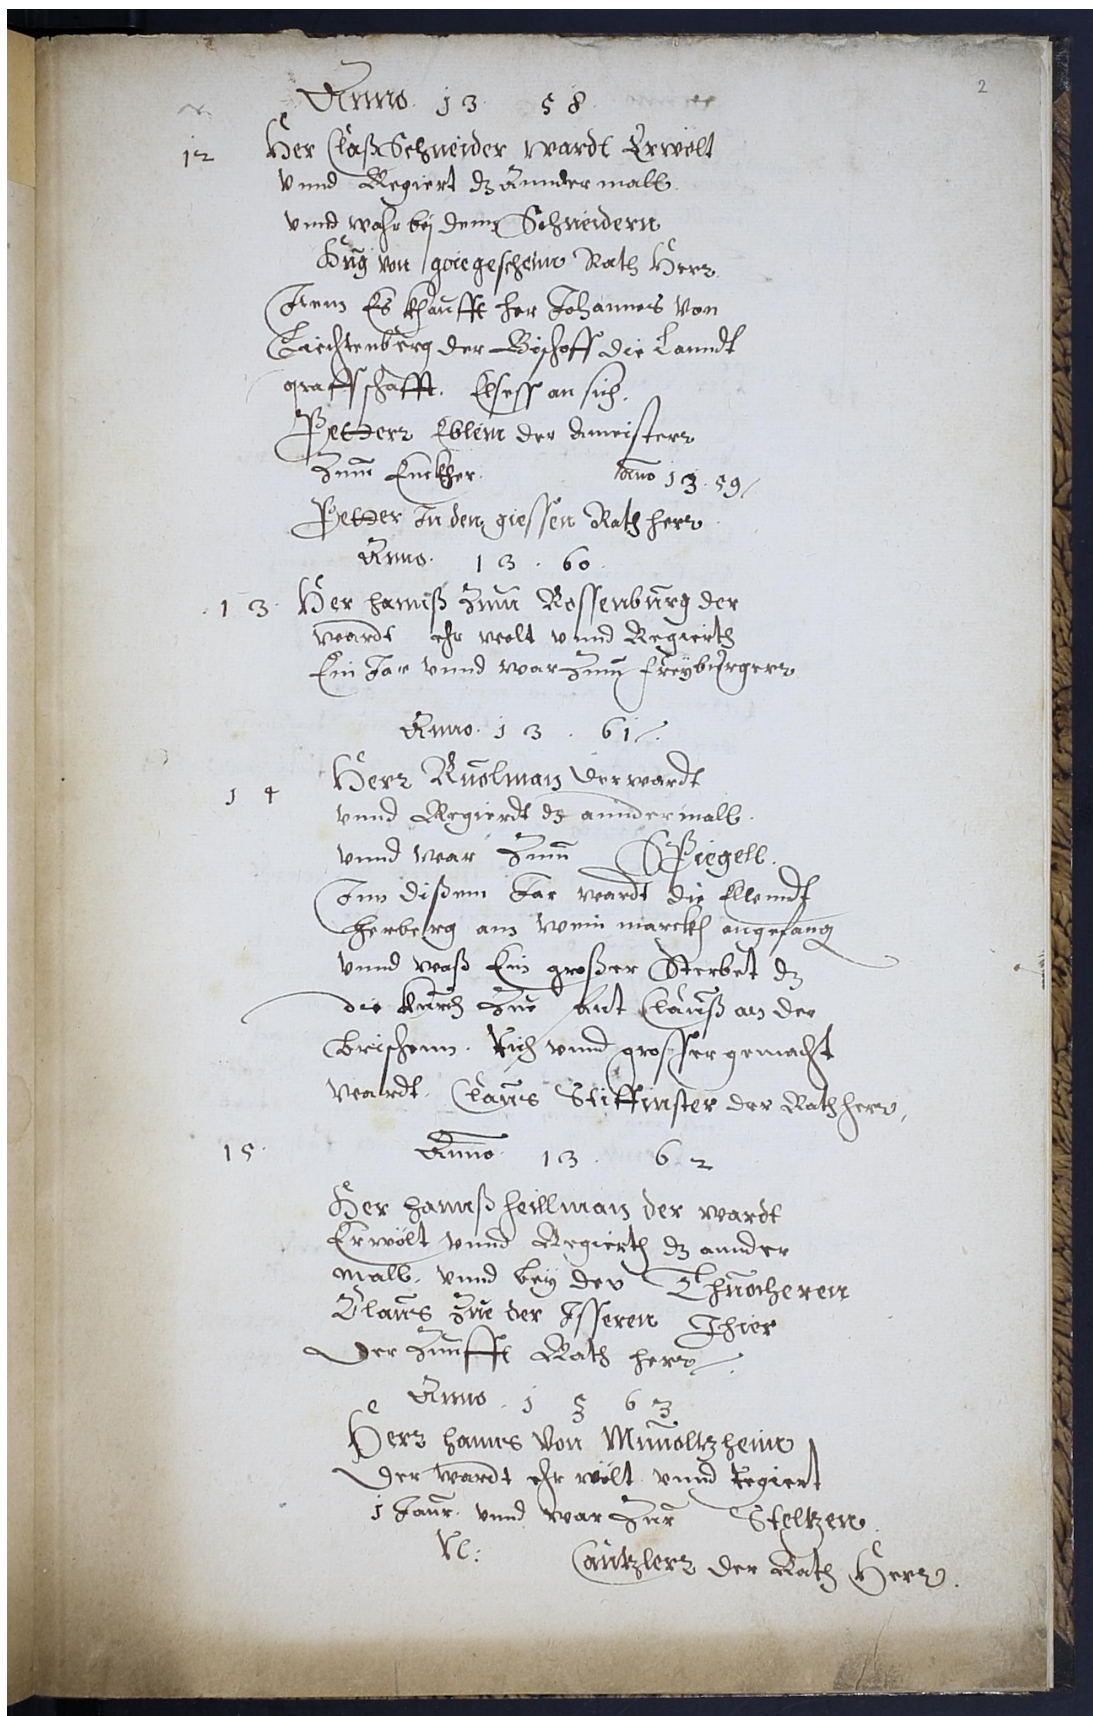 2
Anno. 13 58.
12 Her Claß Schneider wardt Erwölt
vnnd Regiert dz Annder mall.
vnnd wahr beÿ denn Schneidern
Hug von goiegeschenn Rath Herr.
Item Es khaufft her Johannes Von
Liechtenberg der Bischoff die Lanndt
graffschafft. Elsess an sich.
Petterr Eblein der Ameisterr
Zum Enckher. Anno 13.59
Petter In den giessen Rath herr.
Anno. 13.60.
13. Her hannß Zum Rossenburg der
wardt ehr welt vnnd Regierth
Ein Jar vnnd war Zum freÿburgerr
Anno. 13.61.
14 Herr Ruolman der wardt
vnnd Regierdt dz annder mall.
vnnd war Zum Spiegell.
Inn dißem Jar wardt die Ellendt
herberg am Wein marckh angefang
vnnd waß Ein großer Sterbet dz
die Kirch Zuo sant Clauß an der
brischenn. Rich vnnd grosser gemacht
wardt. Clauss Stiffinster der Rath herr,
15. Anno. 13. 62
Her hannß heillman der wardt
Erwölt vnnd Regierth dz annder
mall. vnnd beÿ der Thuocheren
Clauss Zue der Isseren Thier
Der Zunfft Rath herr.
Anno. 1 3 6 3
Herr hanns Von Munoltzheim
Der wardt ehr wölt vnnd Regiert
1 Jaur. vnnd war Zur Steltzen.
Cantzlerr der Rath Herr.